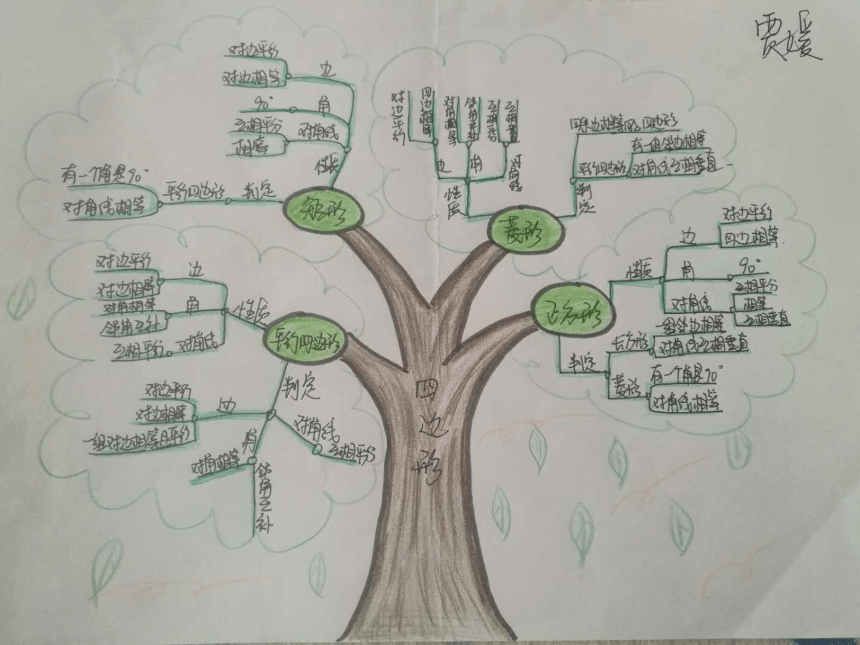 贾媛
对边平行
对边相等
边
90°
角
互相平分
相等
对角线
性质
有一个角是90°
对角线相等
平行四边形
判定
矩形
对边平行
四边相等
对角相等
邻角互补
互相平分
互相垂直
边
角
对角线
性质
四条边相等的四边形
有一组邻边相等
平行四边形
对角线互相垂直
判定
菱形
对边平行
对边相等
边
对角相等
邻角互补
角
互相平分
对角线
性质
平行四边形
判定
对边平行
对边相等
一组对边相等且平行
边
角
对角相等
邻角互补
对角线
互相平分
正方形
性质
边
对边平行
四边相等
角
90°
对角线
互相平分
相等
互相垂直
判定
长方形
一组邻边相等
对角线互相垂直
菱形
有一个角是90°
对角线相等
四边形